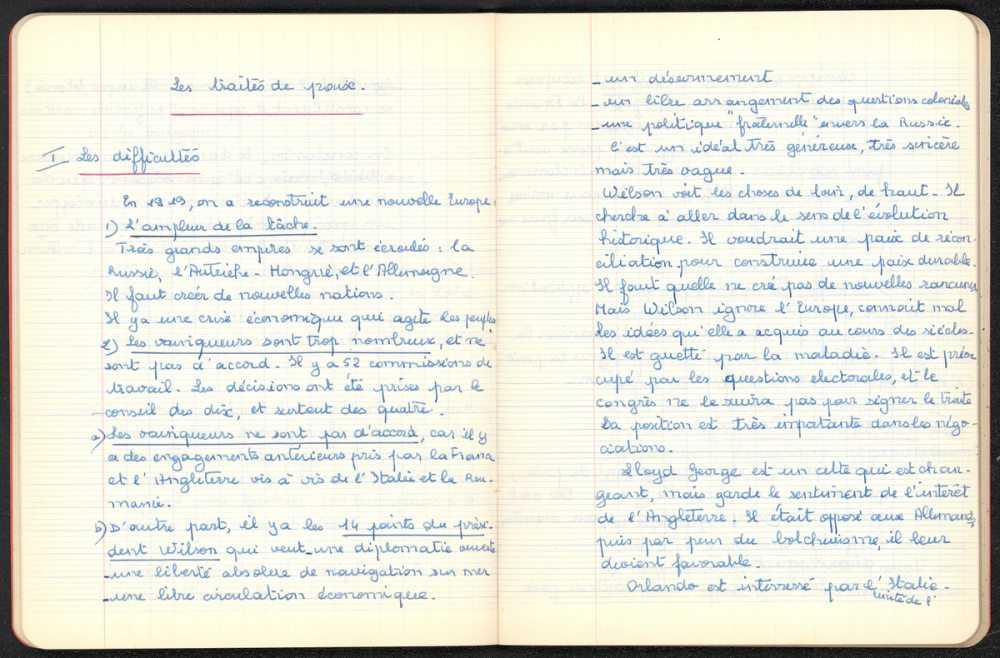 Les traités de paix.
I Les difficultés
En 1919, on a reconstruit une nouvelle Europe.
1) L'ampleur de la tâche.
Trois grands empires se sont écroulés : la
Russie, l'Autriche-Hongrie, et l'Allemagne.
Il faut créer de nouvelles nations.
Il y a une crise économique qui agite les peuples
2) Les vainqueurs sont trop nombreux, et ne
sont pas d'accord. Il y a 52 commissions de
travail. Les décisions ont été prises par le
conseil des dix, et surtout des quatre.
a) Les vainqueurs ne sont pas d'accord, car il y
a des engagements antérieurs pris par la France
et l'Angleterre vis à vis de l'Italie et la Rou-
manie.
b) D'autre part, il y a les 14 points du prési-
dent Wilson qui veut - une diplomatie ouverte
- une liberté absolue de navigation sur mer
- une libre circulation économique.
- un désarmement
- un libre arrangement des questions coloniales
- une politique "fraternelle" envers la Russie.
C'est un idéal très généreux, très sincère
mais très vague.
Wilson voit les choses de loin, de haut. Il
cherche à aller dans le sens de l'évolution
historique. Il voudrait une paix de récon-
ciliation pour construire une paix durable.
Il faut quelle ne cré pas de nouvelles rancunes
Mais Wilson ignore l'Europe, connait mal
les idées qu'elle a acquis au cours des siècles.
Il est guetté par la maladie. Il est préoc
cupé par les questions électorales, et le
congrès ne le suivra pas pour signer le traité
Sa position est très importante dans les négo-
ciations.
Lloyd George est un celte qui est chan-
geant, mais garde le sentiment de l'intérêt
de l'Angleterre. Il était opposé aux Allemands,
puis par peur du bolchevisme, il leur
devient favorable.
Orlando est intéressé par l'Italie.
unité de l'